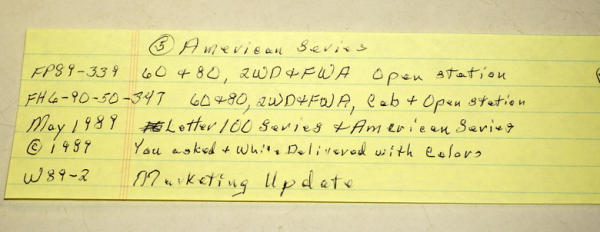 ⑤ American Series
FP89-339 60 & 80, 2WD & FWA Open station
FH6-90-50-347 60 & 80, 2WD & FWA, Cab & Open station
May 1989 Letter 100 Series & American Series
© 1989 You asked & White Delivered with Colors
W89-2 Marketing Update